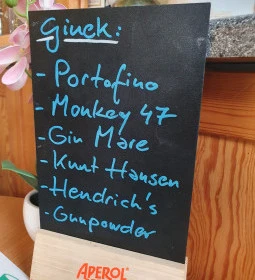 Gineck:
- Portofino
- Monkey 47
- Gin Mare
- Knut Hansen
- Hendrich's
- Gunpowder
APEROL